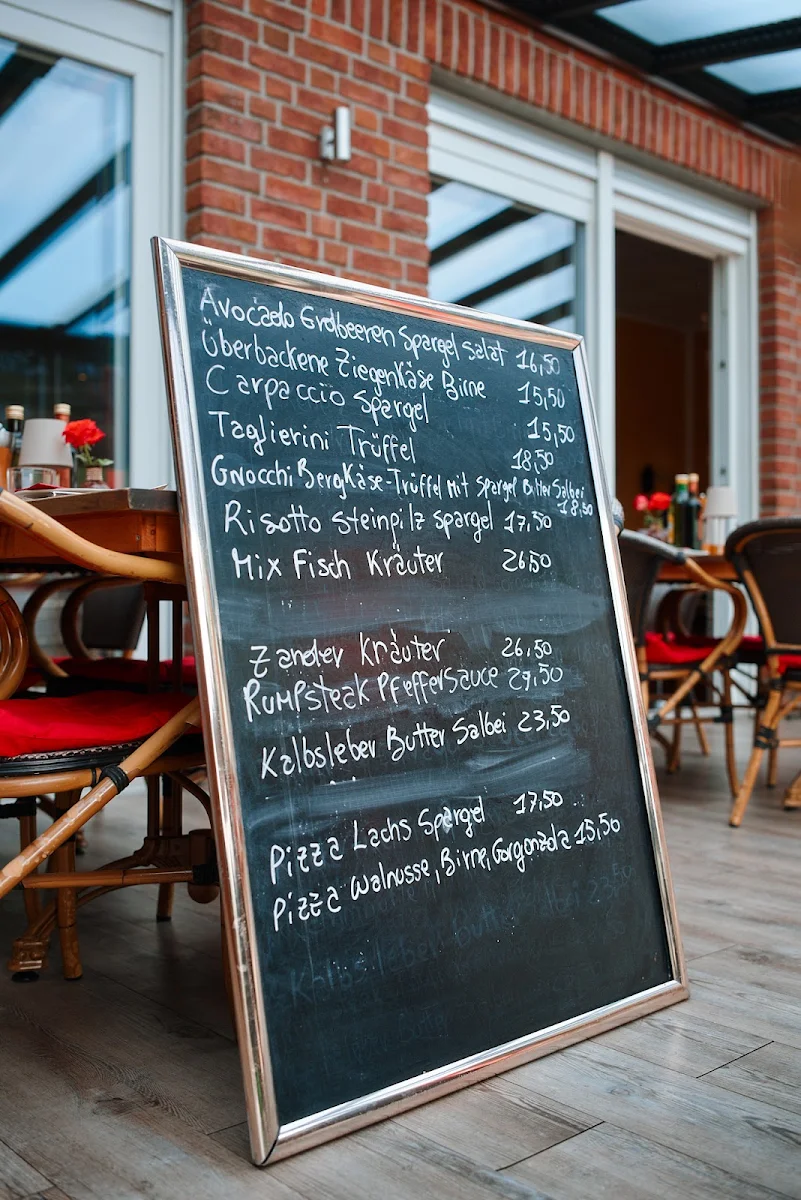 Avocado Erdbeeren Spargel Salat 16,50
Überbackene Ziegenkäse Birne 15,50
Carpaccio Spargel 15,50
Taglierini Trüffel 18,50
Gnocchi Bergkäse-Trüffel Mit Spargel Butter Salbei
18,50
Risotto Steinpilz Spargel 17,50
Mix Fisch Kräuter 26,50
Zander Kräuter 26,50
Rumpsteak Pfeffersauce 29,50
Kalbsleber Butter Salbei 23,50
Pizza Lachs Spargel 17,50
Pizza Walnusse, Birne, Gorgonzola 15,50
Kalbsleber Butter Salbei 23,50